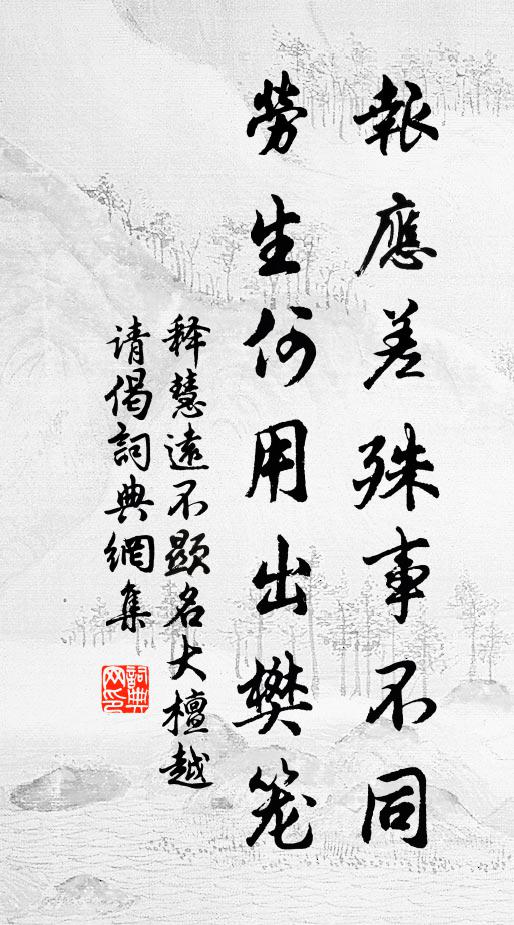 報應差殊事不同
勞生何用出樊笼
释慧遠不顯名大檀越
请偈詞典網集
詞典
网印